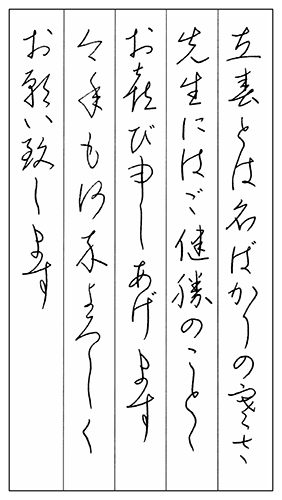 立春とは名ばかりの寒さ
先生にはご健勝のことゝ
お喜び申しあげます
今年も何卒よろしく
お願い致します